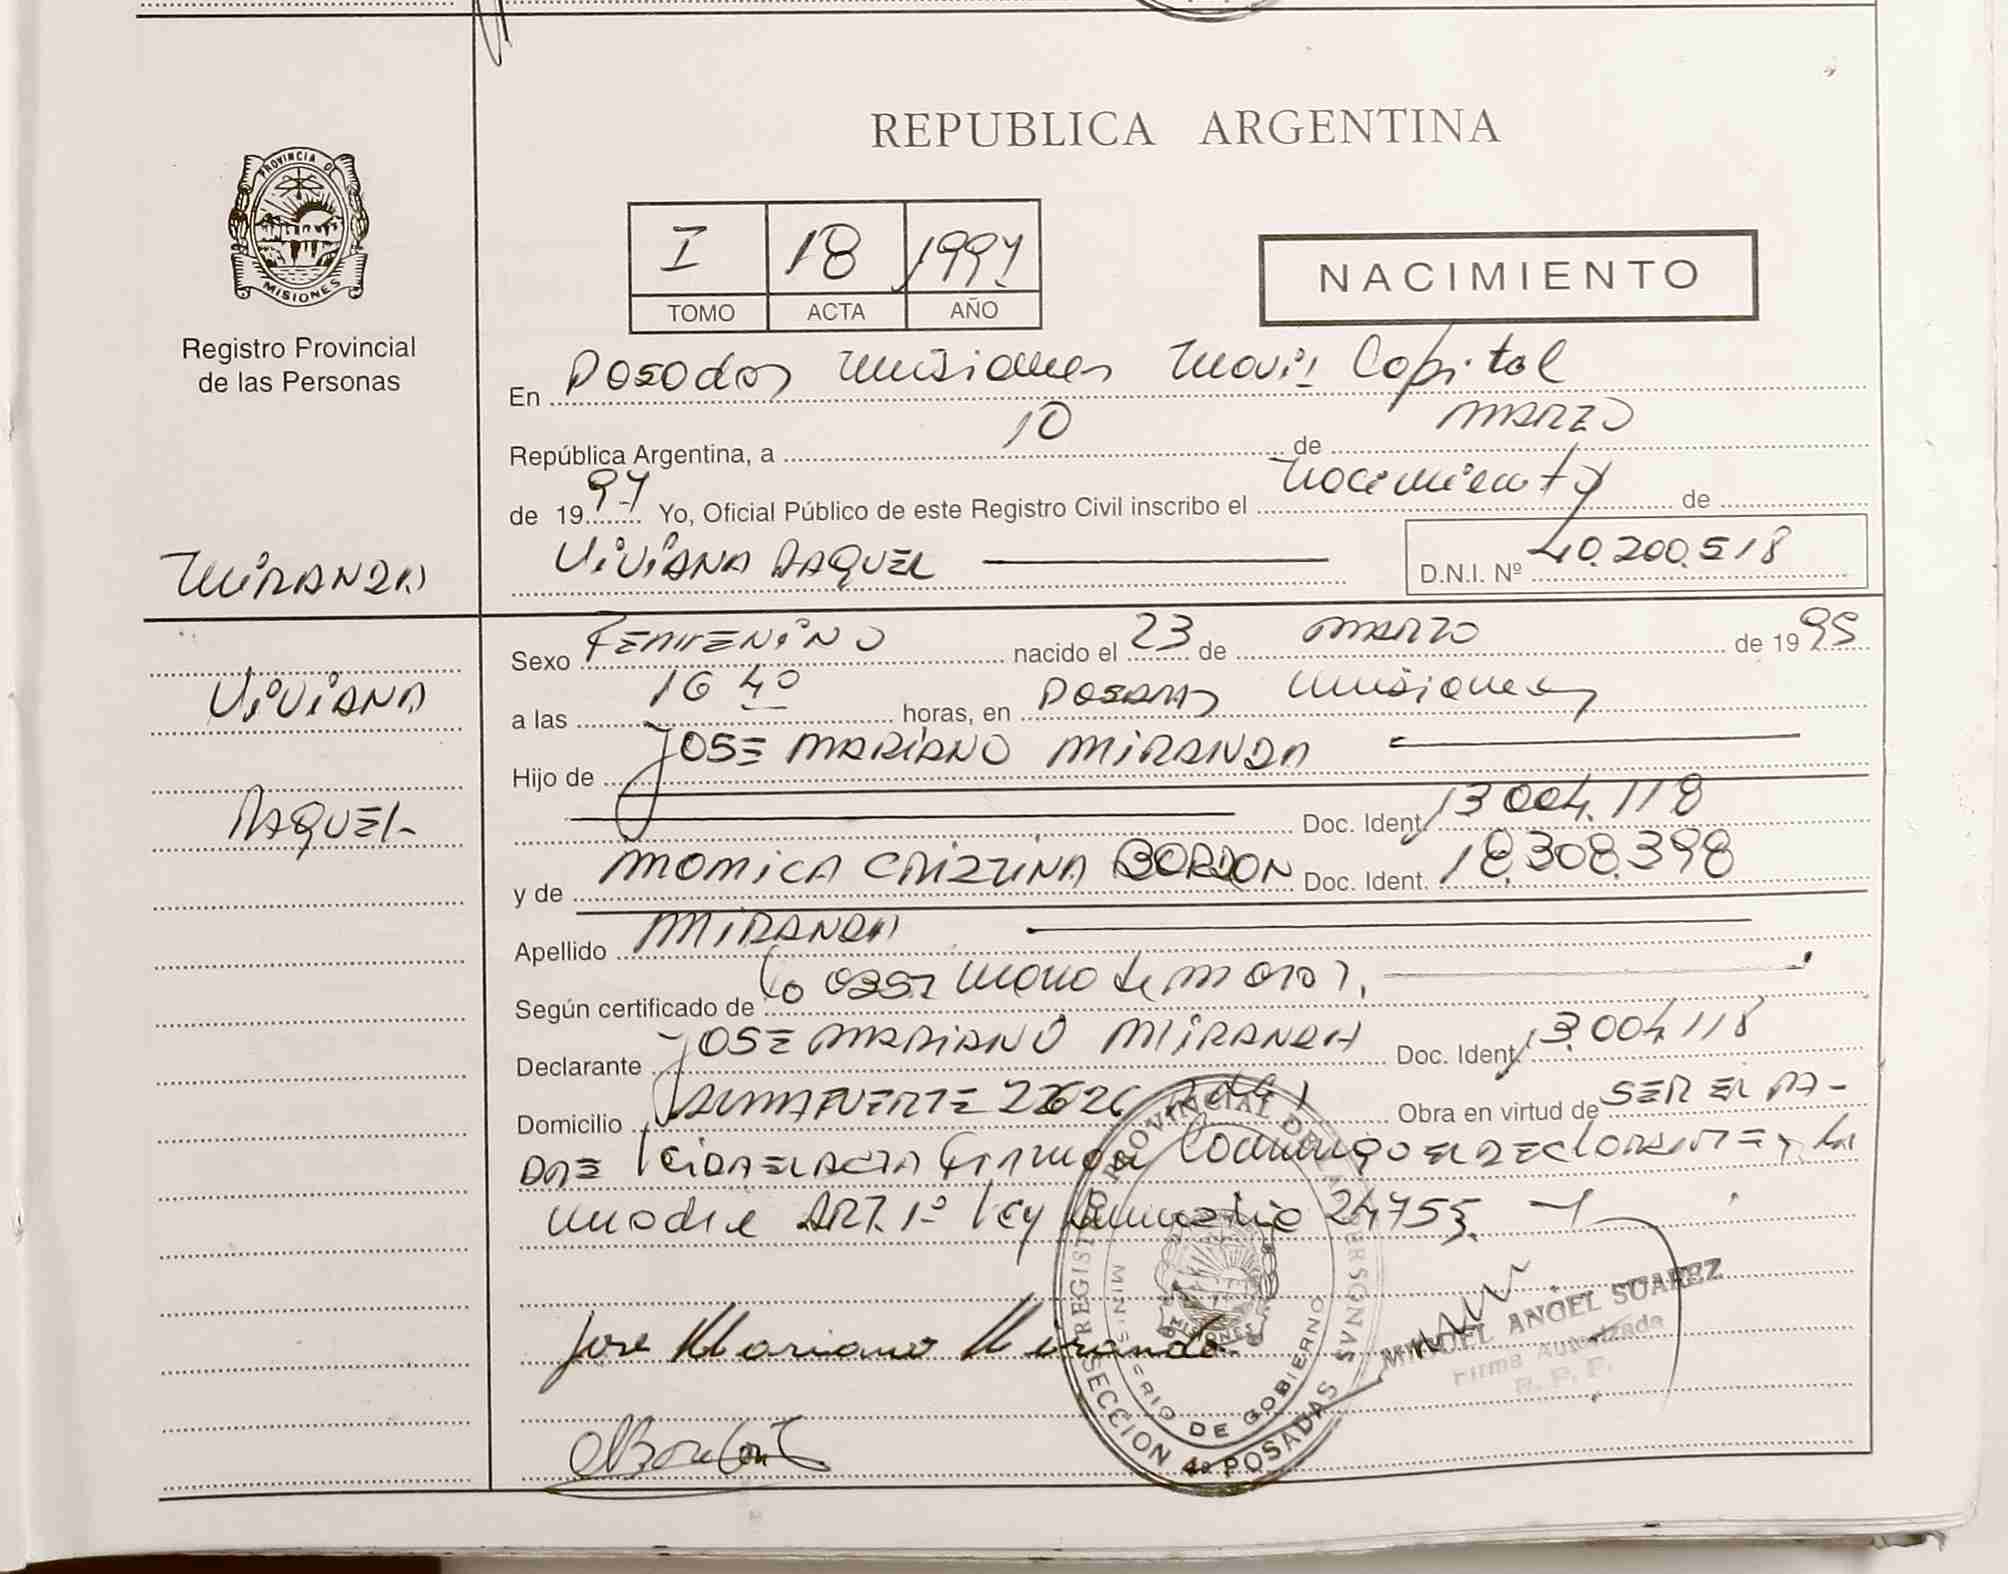 REPUBLICA ARGENTINA
PROVINCIA DE
MISIONES
Registro Provincial
de las Personas
I 18 1997
TOMO ACTA AÑO
NACIMIENTO
En Posadas Misiones Movil Capital
República Argentina, a 10 de MARZO
de 1997 Yo, Oficial Público de este Registro Civil inscribo el nacimiento de
VIVIANA RAQUEL
D.N.I. Nº 40.200.518
MIRANDA
VIVIANA
RAQUEL
Sexo FEMENINO nacido el 23 de MARZO de 1995
a las 16 40 horas, en POSADAS Misiones
Hijo de JOSE MARIANO MIRANDA
Doc. Ident. 13.004.118
y de MONICA CRISTINA BORDON Doc. Ident. 18.308.398
Apellido MIRANDA
Según certificado de
Declarante JOSE MARIANO MIRANDA Doc. Ident. 13.004.118
Domicilio ALMAFUERTE Obra en virtud de SER EL PA-
DRE leida el acta firman conmigo el declarante y la
madre ART. 1º ley amnistia 24755.
Jose Mariano Miranda
REGISTRO PROVINCIAL DE LAS PERSONAS
MINISTERIO DE GOBIERNO
MISIONES
SECCION 4a POSADAS
MIGUEL ANGEL SUAREZ
Firma Autorizada
R. P. P.